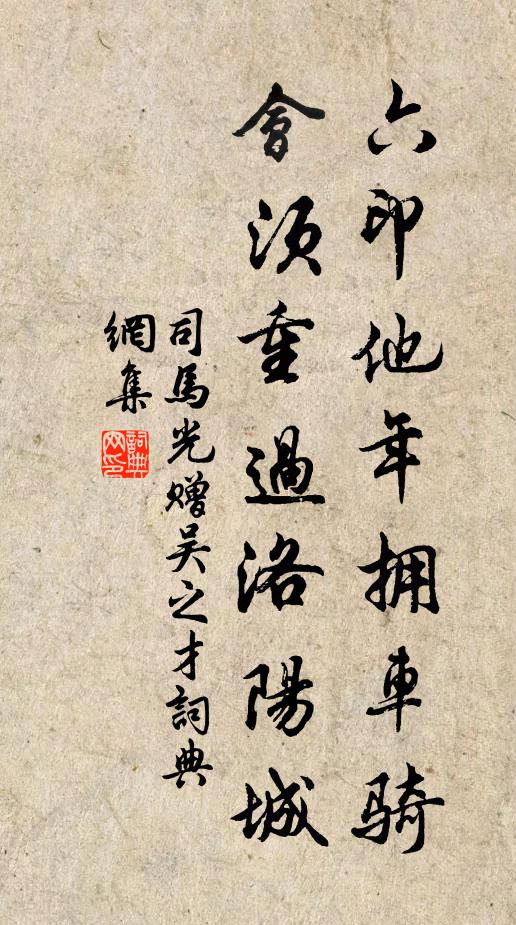 六印他年拥車騎
會須重過洛陽城
司馬光贈吴之才詞典
網集
詞典网印